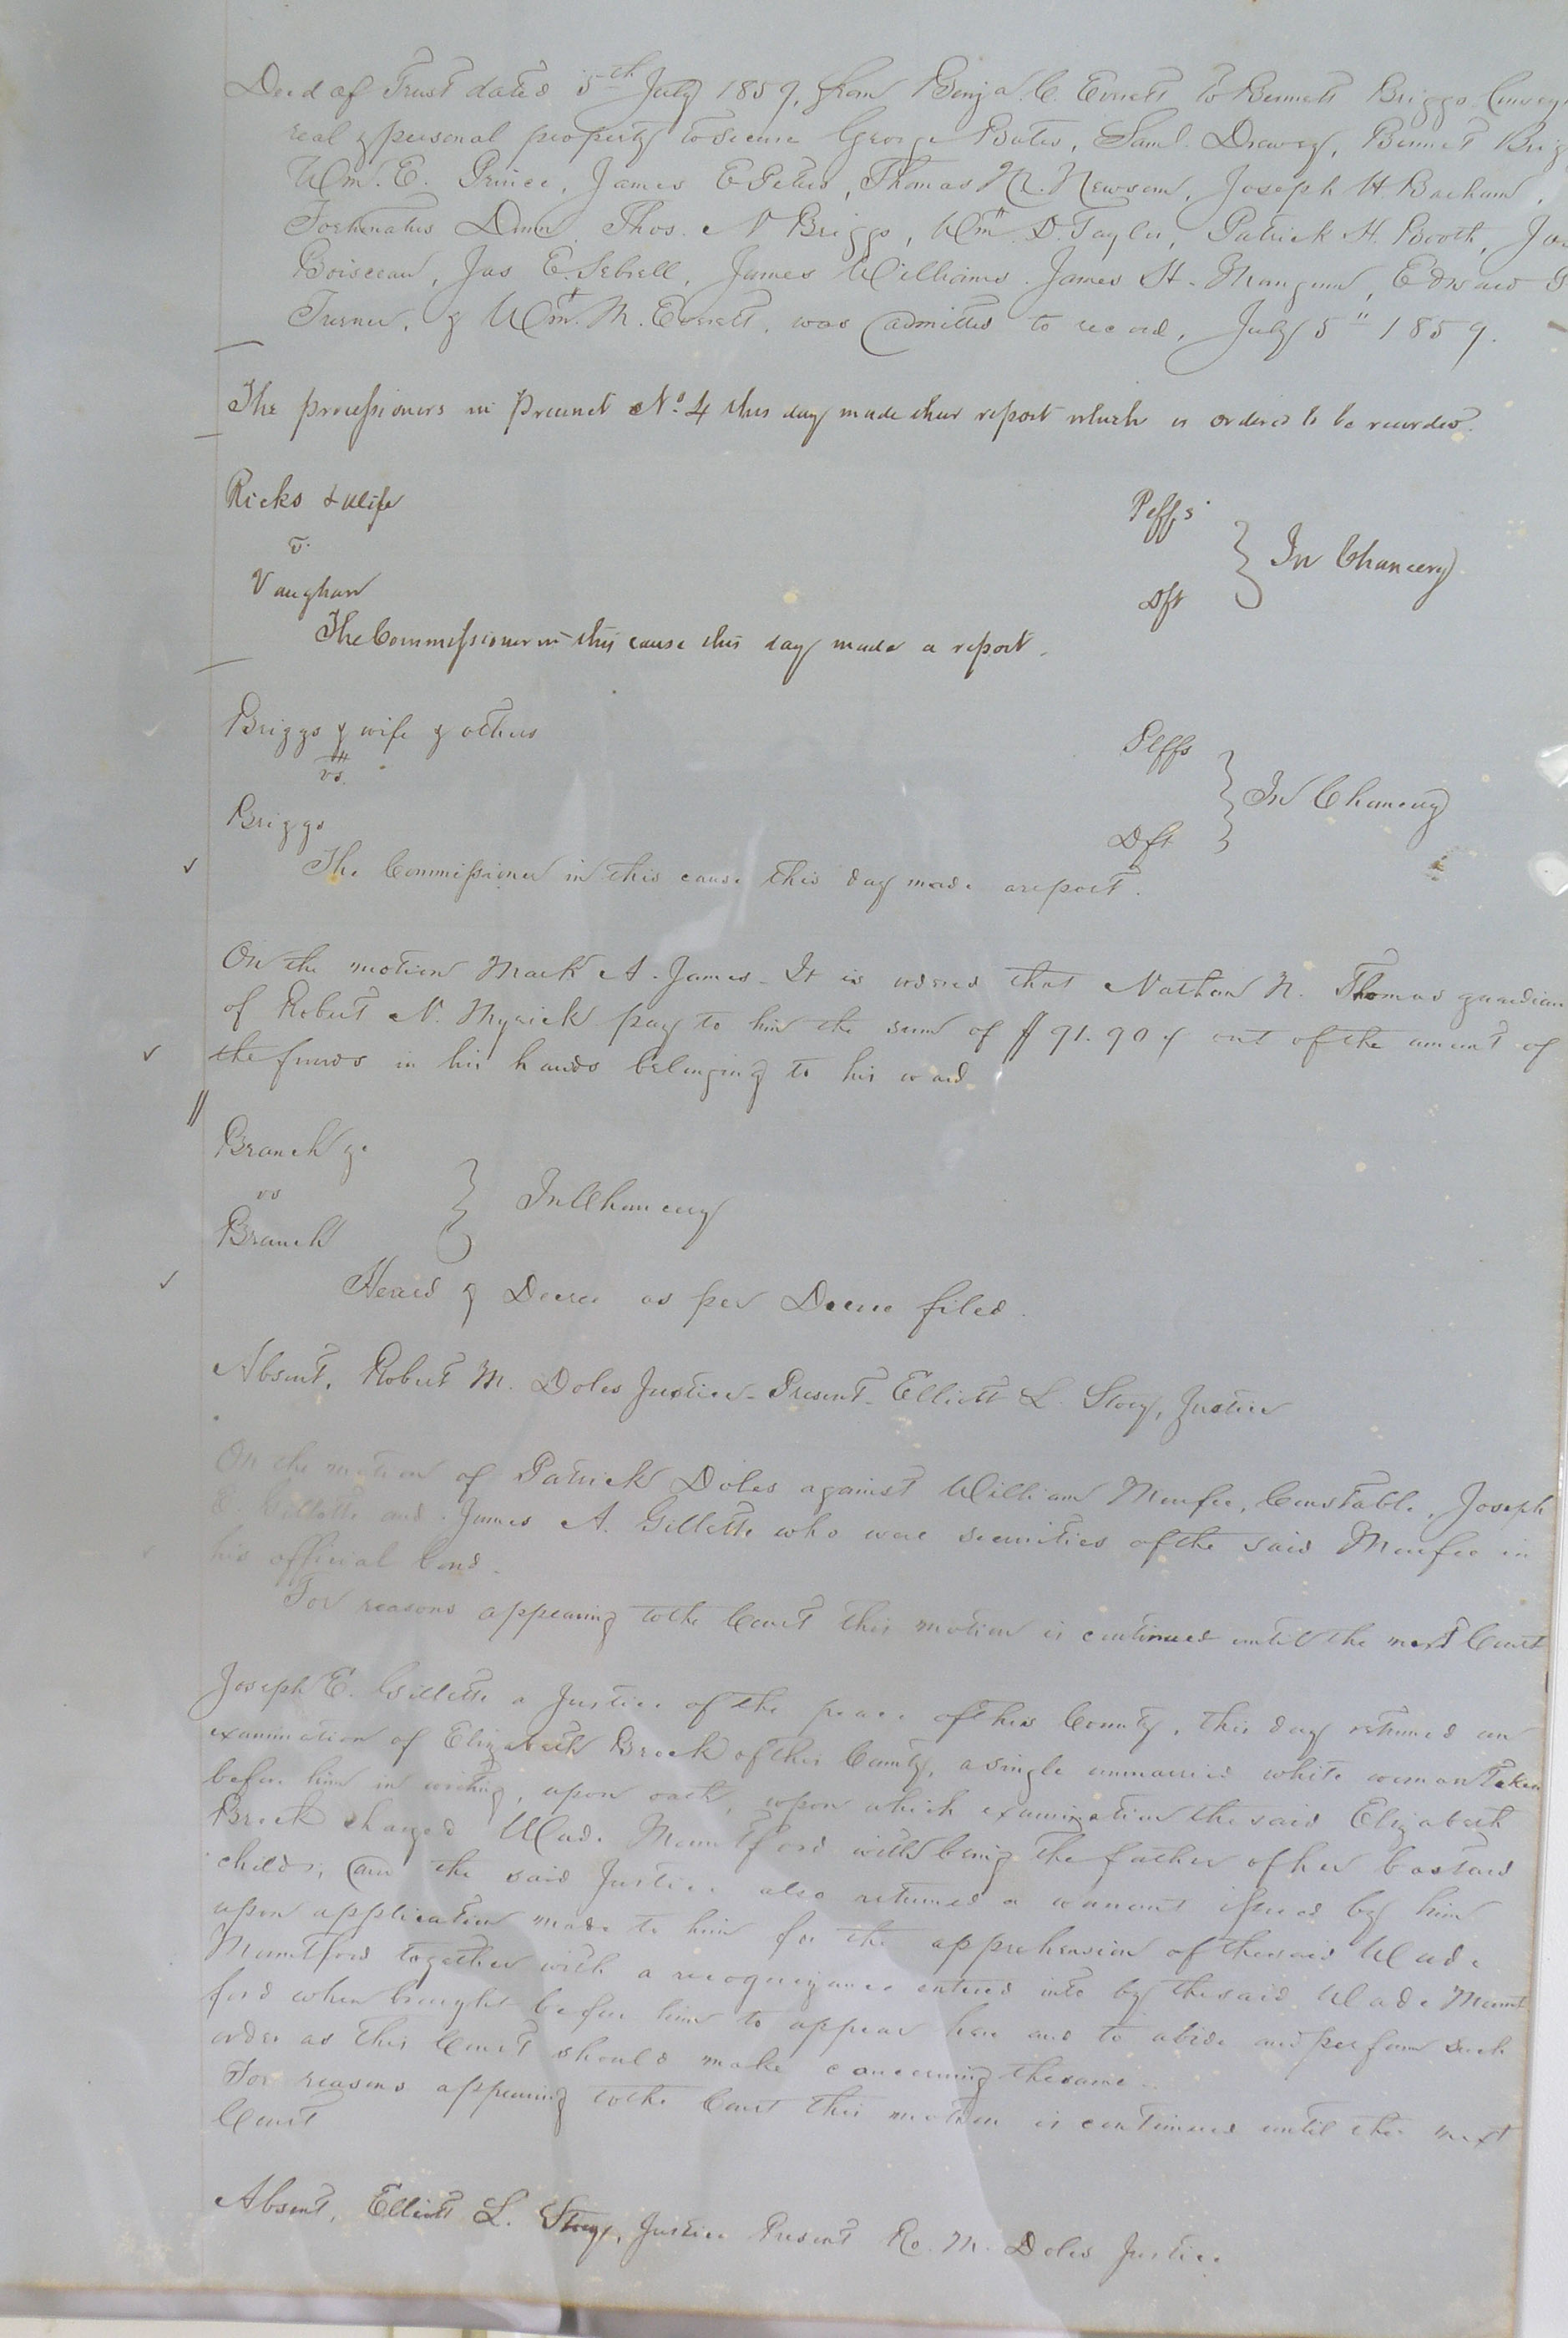 Deed of Trust dated 5th July 1859, from Benja. C. Everett to Bennett Briggs
real & personal property to secure George Bates, Saml. Drewey, Bennet
Wm. E. Prince, James E Peters, Thomas M. Newsom, Joseph H. Barham,
Fortunatus Dunn, Thos. N Briggs, Wm. D. Taylor, Patrick H. Booth,
Boisceau, Jas E. Sebrell, James Williams. James H. Mangum, Edward
Turner, & Wm. M. Everett, was admitted to record, July 5" 1859.
The processioners in Precinct No. 4 this day made their report which is ordered to be recorded.
Ricks & Wife Plffs
v. } In Chancery
Vaughan Dft
The Commissioner in this cause this day made a report.
Briggs & wife & others Plffs
vs. } In Chancery
Briggs Dft
The Commissioner in this cause this day made a report.
On the motion Mark A. James - It is ordered that Nathan N. Thomas guardian
of Robert N. Myrick pay to him the sum of $91.90 out of the amount of
the funds in his hands belonging to his ward
Branch &c
vs } In Chancery
Branch
Heard & Decree as per Decree filed.
Absent, Robert M. Doles Justice - Present - Elliott L. Story, Justice
On the motion of Patrick Doles against William Murfee, Constable, Joseph
E. Gillette and James A. Gillette who were securities of the said Murfee in
his official bond.
For reasons appearing to the Court this motion is continued until the next Court
Joseph E. Gillette a Justice of the peace of this County, this day returned an
examination of Elizabeth Brock of this County, a single unmarried white woman taken
before him in writing, upon oath, upon which examination the said Elizabeth
Brock charged Wade Mountford with being the father of her bastard
child, and the said Justice also returned a warrant issued by him
upon application made to him for the apprehension of the said Wade
Mountford together with a recognizance entered into by the said Wade Mount
ford when brought before him to appear here and to abide and perform such
order as this Court should make concerning the same.
For reasons appearing to the Court this motion is continued until the next
Court
Absent, Elliott L. Story, Justice Present Ro. M. Doles Justice